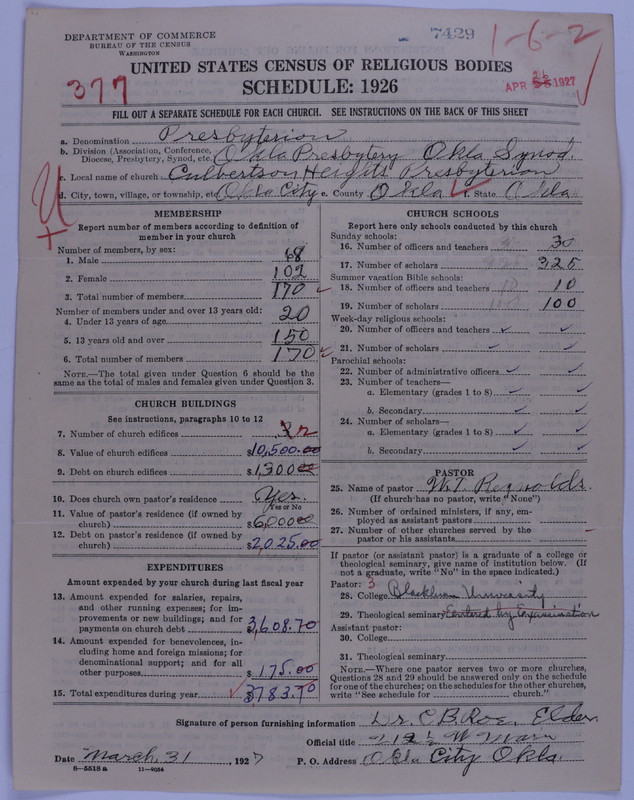 DEPARTMENT OF COMMERCE
BUREAU OF THE CENSUS
WASHINGTON
7429
1-6-2
UNITED STATES CENSUS OF RELIGIOUS BODIES
SCHEDULE: 1926
377
APR 26 1927
FILL OUT A SEPARATE SCHEDULE FOR EACH CHURCH. SEE INSTRUCTIONS ON THE BACK OF THIS SHEET
a. Denomination Presbyterion
b. Division (Association, Conference, Diocese, Presbytery, Synod, etc. Okla Presbytery Okla Synod.
c. Local name of church Culbertson Heights Presbyterion
d. City, town, village, or township, etc Okla City e. County Okla f. State Okla
MEMBERSHIP
Report number of members according to definition of
member in your church
Number of members, by sex:
1. Male 68
2. Female 102
3. Total number of members 170
Number of members under and over 13 years old:
4. Under 13 years of age 20
5. 13 years old and over 150
6. Total number of members 170
NOTE.—The total given under Question 6 should be
same as the total of males and females given under Question 3.
CHURCH BUILDINGS
See instructions, paragraphs 10 to 12
7. Number of church edifices
8. Value of church edifices $10,500.00
9. Debt on church edifices $1,300.00
10. Does church own pastor's residence Yes.
Yes or No
11. Value of pastor's residence (if owned by
church) $6,000.00
12. Debt on pastor's residence (if owned by
church) $2,025.00
EXPENDITURES
Amount expended by your church during last fiscal year
13. Amount expended for salaries, repairs,
and other running expenses; for im-
provements or new buildings; and for
payments on church debt $3,608.70
14. Amount expended for benevolences, in-
cluding home and foreign missions; for
denominational support; and for all
other purposes $175.00
15. Total expenditures during year $3783.70
CHURCH SCHOOLS
Report here only schools conducted by this church
Sunday schools:
16. Number of officers and teachers 30
17. Number of scholars 325
Summer vacation Bible schools:
18. Number of officers and teachers 10 10
19. Number of scholars 100 100
Week-day religious schools:
20. Number of officers and teachers
21. Number of scholars
Parochial schools:
22. Number of administrative officers
23. Number of teachers—
a. Elementary (grades 1 to 8)
b. Secondary
24. Number of scholars—
a. Elementary (grades 1 to 8)
b. Secondary
PASTOR
25. Name of pastor W.T. Reynolds.
(If church has no pastor, write "None")
26. Number of ordained ministers, if any, em-
ployed as assistant pastors
27. Number of other churches served by the
pastor or his assistants
If pastor (or assistant pastor) is a graduate of a college or
theological seminary, give name of institution below. (If
not a graduate, write "No" in the space indicated.)
Pastor: 3
28. College Blackburn University
29. Theological seminary Entered by Examination
Assistant pastor:
30. College
31. Theological seminary
NOTE.—Where one pastor serves two or more churches,
Questions 28 and 29 should be answered only on the schedule
for one of the churches; on the schedules for the other churches,
write "See schedule for church."
Signature of person furnishing information Dr. C B. Roe, Elder
Official title 212½ W Main
Date March, 31, 1927 P. O. Address Okla City Okla.
8—5518 a 11—9054